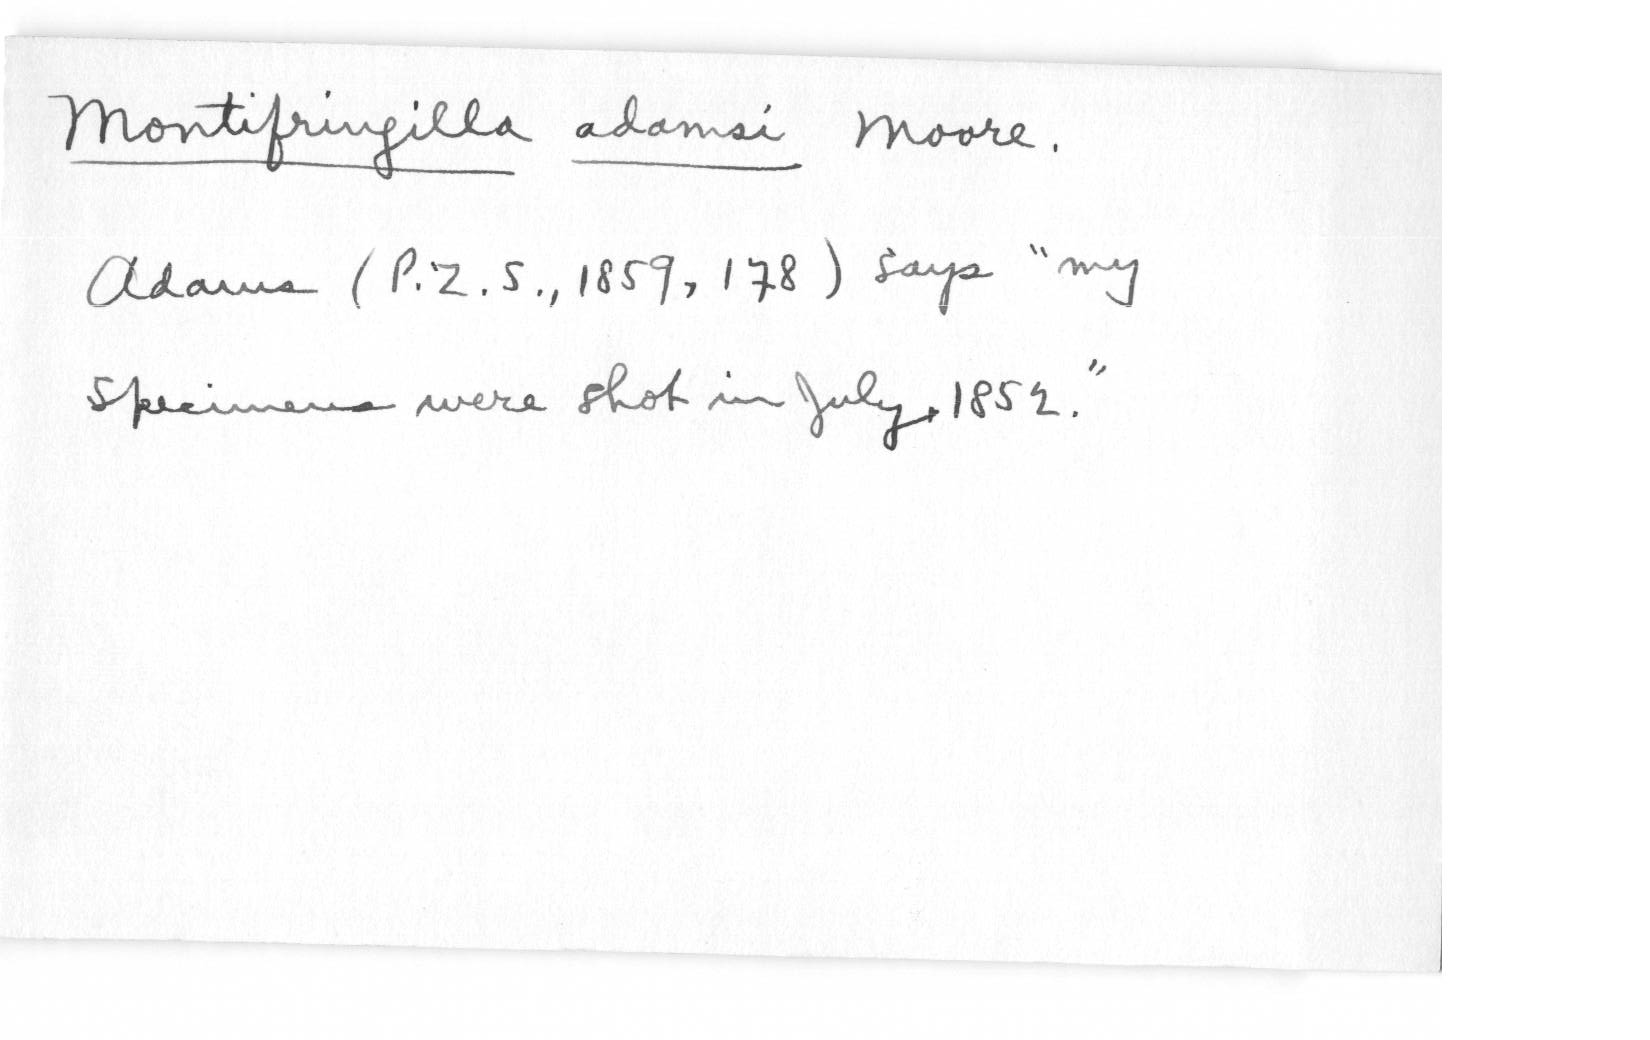 Montifringilla adamsi Moore.
Adams (P.Z.S., 1859, 178) says "my
specimens were shot in July, 1852."